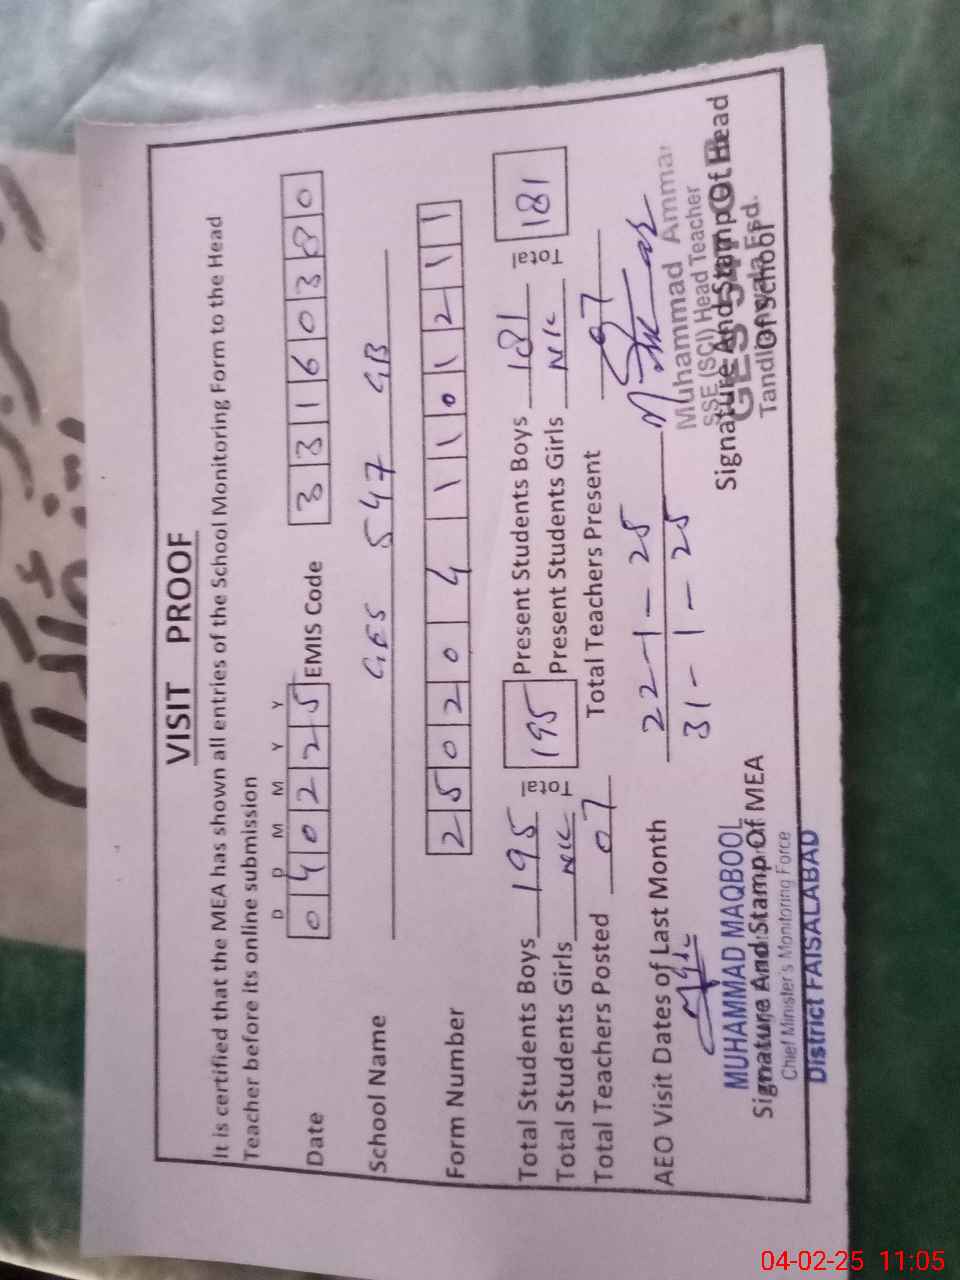 VISIT PROOF
It is certified that the MEA has shown all entries of the School Monitoring Form to the Head
Teacher before its online submission
D D M M Y Y
Date 040225 EMIS Code 33160380
School Name GES 547 GB
Form Number 25020411101211
Total Students Boys 195 Total 195 Present Students Boys 181 Total 181
Total Students Girls Nil Present Students Girls Nil
Total Teachers Posted 07 Total Teachers Present 07
AEO Visit Dates of Last Month 22-1-25
31-1-25
MUHAMMAD MAQBOOL
Signature And Stamp Of MEA
Chief Minister's Monitoring Force
District FAISALABAD
Muhammad Ammar
SSE (SCI) Head Teacher
GES 547 GB
Signature And Stamp Of Head
Of School
Tandlianwala Fsd.
04-02-25 11:05